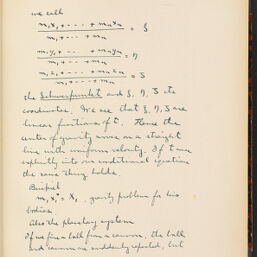 we call
m₁x₁ + ··· + mₙxₙ / m₁ + ··· + mₙ = ξ
m₁y₁ + ··· + mₙyₙ / m₁ + ··· + mₙ = η
m₁z₁ + ··· + mₙzₙ / m₁ + ··· + mₙ = ζ
the Schwerpunkt and ξ, η, ζ its
coordinates. We see that ξ, η, ζ are
linear functions of t. Hence the
center of gravity moves on a straight
line with uniform velocity. If t num
explicitly into our conditional equations
the same thing holds.
Beispiel
m₁ x₁" = X₁, gravity problem for two
bodies
Also the planetary system
If we fire a ball from a cannon, the ball
and cannon are suddenly repelled, but